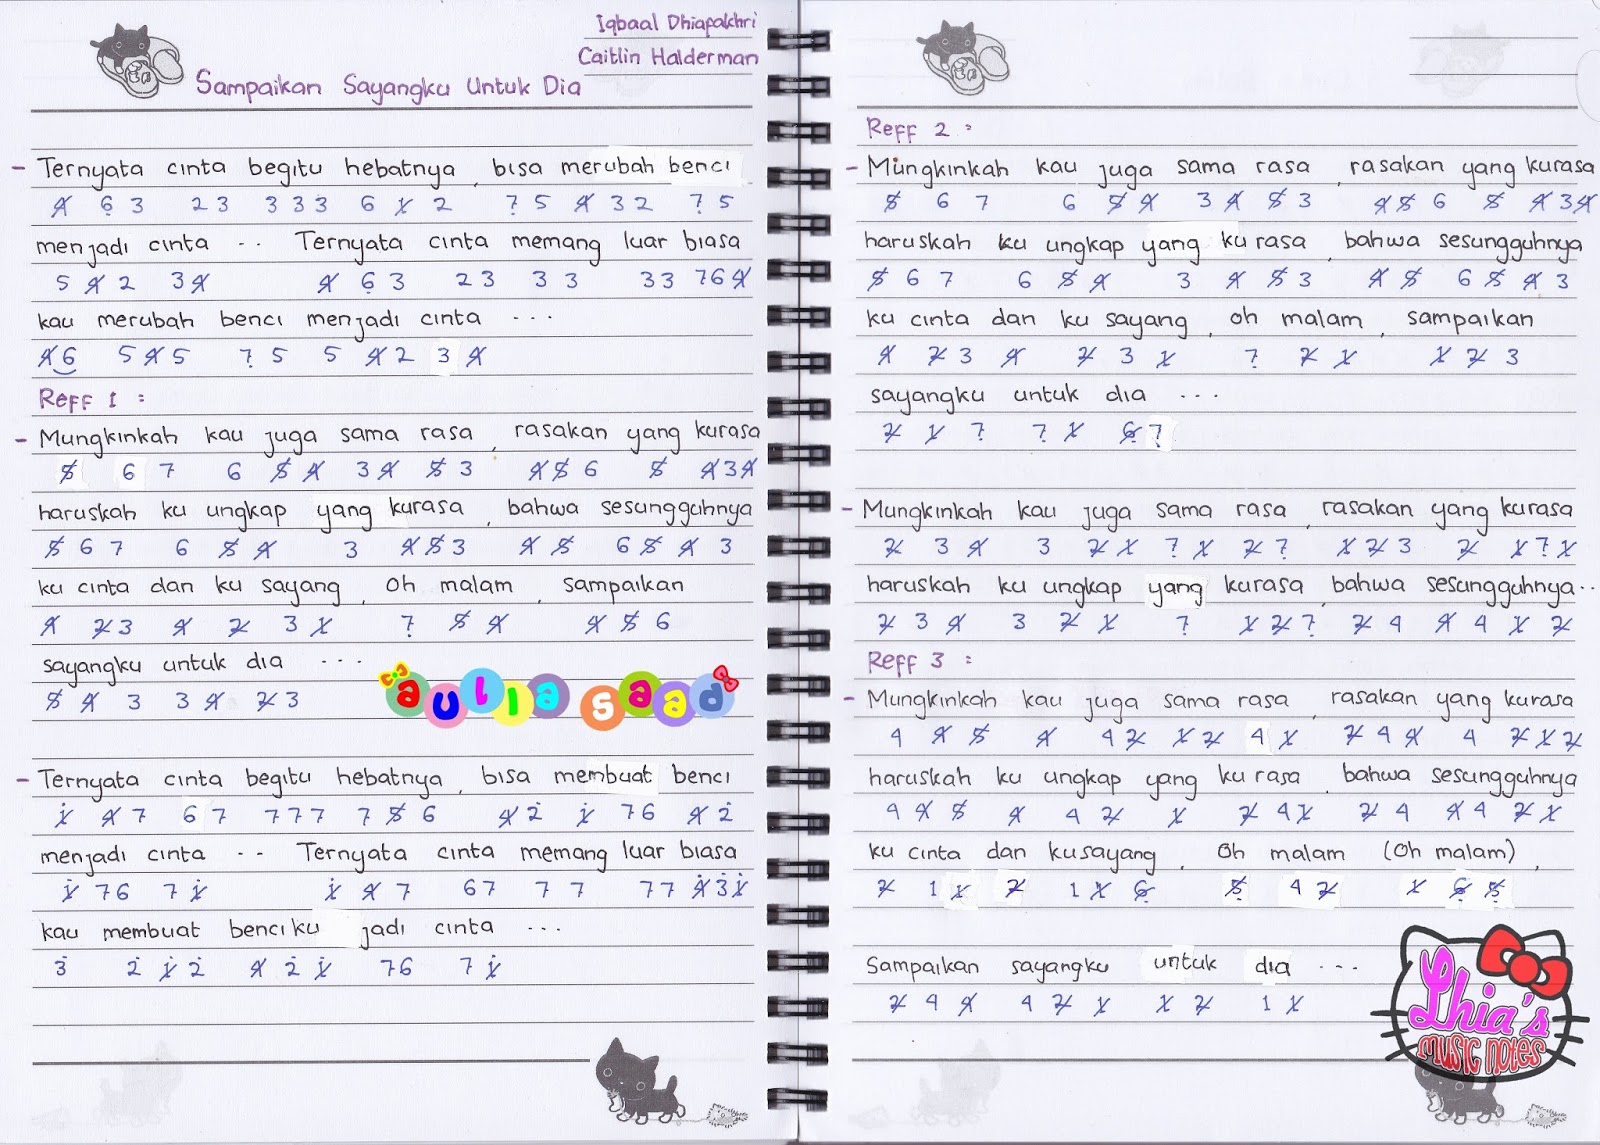 Iqbaal Dhiafakhri
Caitlin Halderman
Sampaikan Sayangku Untuk Dia
- Ternyata cinta begitu hebatnya, bisa merubah benci
4̸ 6̣ 3 2 3 3 3 3 6 1̸ 2 7̣ 5 4̸ 3 2 7̣ 5
menjadi cinta .. Ternyata cinta memang luar biasa
5 4̸ 2 3 4̸ 4̸ 6̣ 3 2 3 3 3 3 3 7 6 4̸
kau merubah benci menjadi cinta ...
4̸ 6 5 4̸ 5 7̣ 5 5 4̸ 2 3 4̸
Reff 1 :
- Mungkinkah kau juga sama rasa, rasakan yang kurasa
5̸ 6 7 6 5̸ 4̸ 3 4̸ 5̸ 3 4̸ 5̸ 6 5̸ 4̸ 3 4̸
haruskah ku ungkap yang kurasa, bahwa sesungguhnya
5̸ 6 7 6 5̸ 4̸ 3 4̸ 5̸ 3 4̸ 5̸ 6 5̸ 4̸ 3
ku cinta dan ku sayang, Oh malam, sampaikan
4̸ 2̸ 3 4̸ 2̸ 3 1̸ 7̣ 5̸ 4̸ 4̸ 5̸ 6
sayangku untuk dia ...
5̸ 4̸ 3 3 4̸ 2̸ 3
aulia saad
- Ternyata cinta begitu hebatnya, bisa membuat benci
1̸̇ 4̸ 7 6 7 7 7 7 7 5̸ 6 4̸ 2̇ 1̸̇ 7 6 4̸ 2̇
menjadi cinta .. Ternyata cinta memang luar biasa
1̸̇ 7 6 7 1̸̇ 1̸̇ 4̸ 7 6 7 7 7 7 7 4̸̇ 3̇ 1̸̇
kau membuat benciku jadi cinta ...
3̇ 2̇ 1̸̇ 2̇ 4̸ 2̇ 1̸̇ 7 6 7 1̸̇
Reff 2 :
- Mungkinkah kau juga sama rasa, rasakan yang kurasa
5̸ 6 7 6 5̸ 4̸ 3 4̸ 5̸ 3 4̸ 5̸ 6 5̸ 4̸ 3 4̸
haruskah ku ungkap yang ku rasa, bahwa sesungguhnya
5̸ 6 7 6 5̸ 4̸ 3 4̸ 5̸ 3 4̸ 5̸ 6 5̸ 4̸ 3
ku cinta dan ku sayang, oh malam, sampaikan
4̸ 2̸ 3 4̸ 2̸ 3 1̸ 7̣ 2̸ 1̸ 1̸ 2̸ 3
sayangku untuk dia ...
2̸ 1̸ 7̣ 7̣ 1̸ 6̸̣ 7̣
- Mungkinkah kau juga sama rasa, rasakan yang kurasa
2̸ 3 4̸ 3 2̸ 1̸ 7̣ 1̸ 2̸ 7̣ 1̸ 2̸ 3 2̸ 1̸ 7̣ 1̸
haruskah ku ungkap yang kurasa, bahwa sesungguhnya..
2̸ 3 4̸ 3 2̸ 1̸ 7̣ 1̸ 2̸ 7̣ 2̸ 4 4̸ 4 1̸ 2̸
Reff 3 :
- Mungkinkah kau juga sama rasa, rasakan yang kurasa
4 4̸ 5̸ 4̸ 4 2̸ 1̸ 2̸ 4 1̸ 2̸ 4 4̸ 4 2̸ 1̸ 2̸
haruskah ku ungkap yang ku rasa, bahwa sesungguhnya
4 4̸ 5̸ 4̸ 4 2̸ 1̸ 2̸ 4 1̸ 2̸ 4 4̸ 4 2̸ 1̸
ku cinta dan kusayang, Oh malam (Oh malam),
2̸ 1 1̸ 2̸ 1 1̸ 6̸̣ 5̸̣ 4 2̸ 1̸ 6̸̣ 5̸̣
Sampaikan sayangku untuk dia ...
2̸ 4 4̸ 4 2̸ 1̸ 1̸ 2̸ 1 1̸
Lhia's
MUSIC NOTES